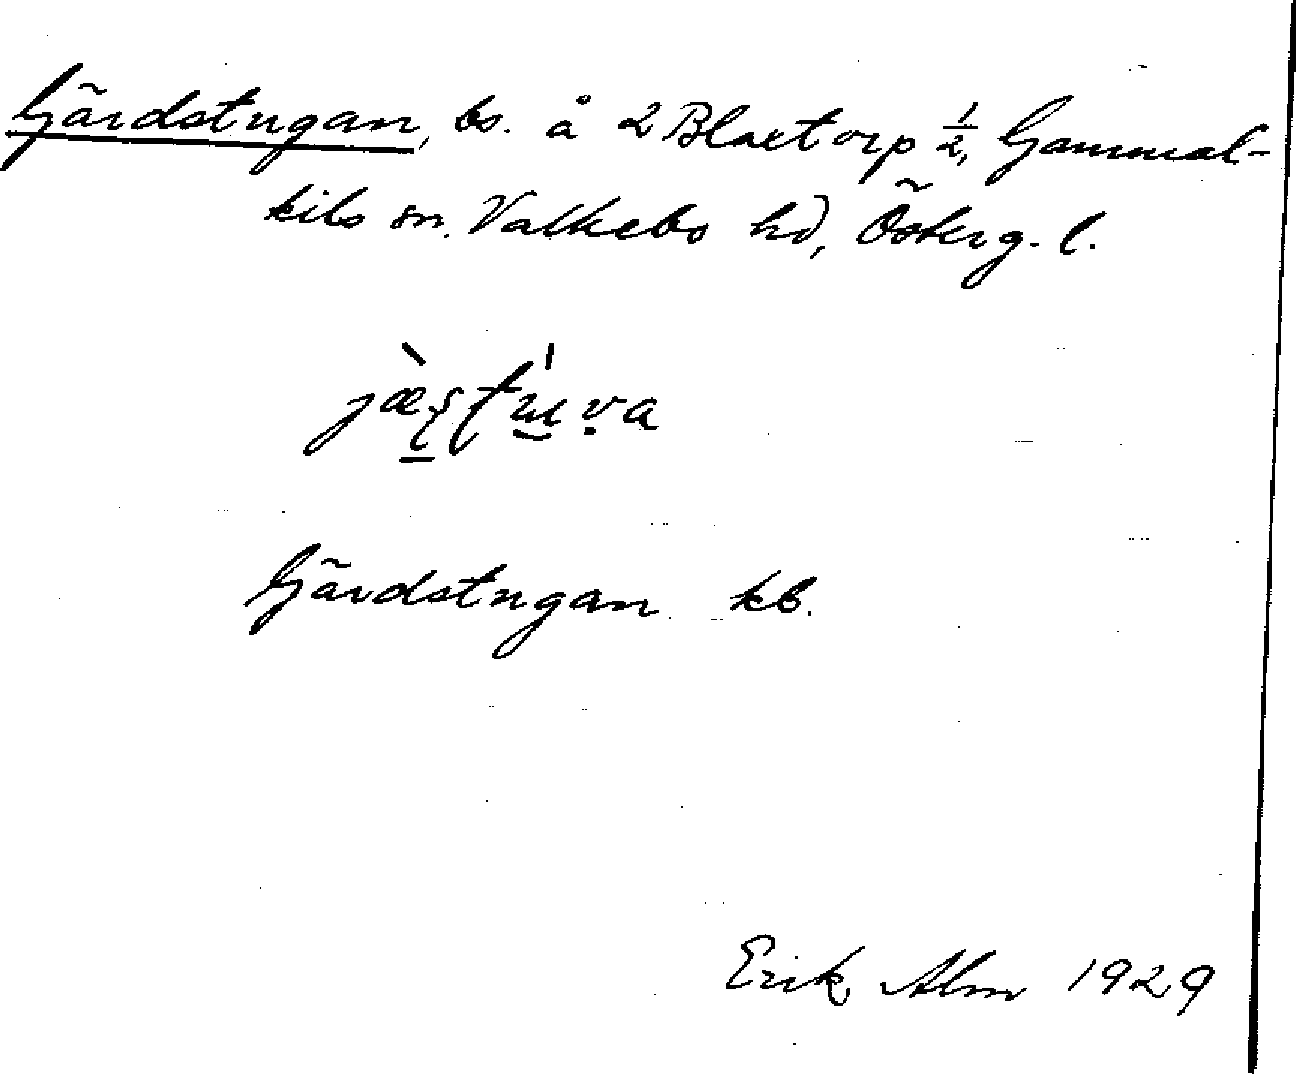 Gärdstugan, bs. å 2 Blaxtorp 1/2, Gammal-
kils sn. Valkebo hd, Österg. l.
Gärdstugan kb.
Erik Alm 1929